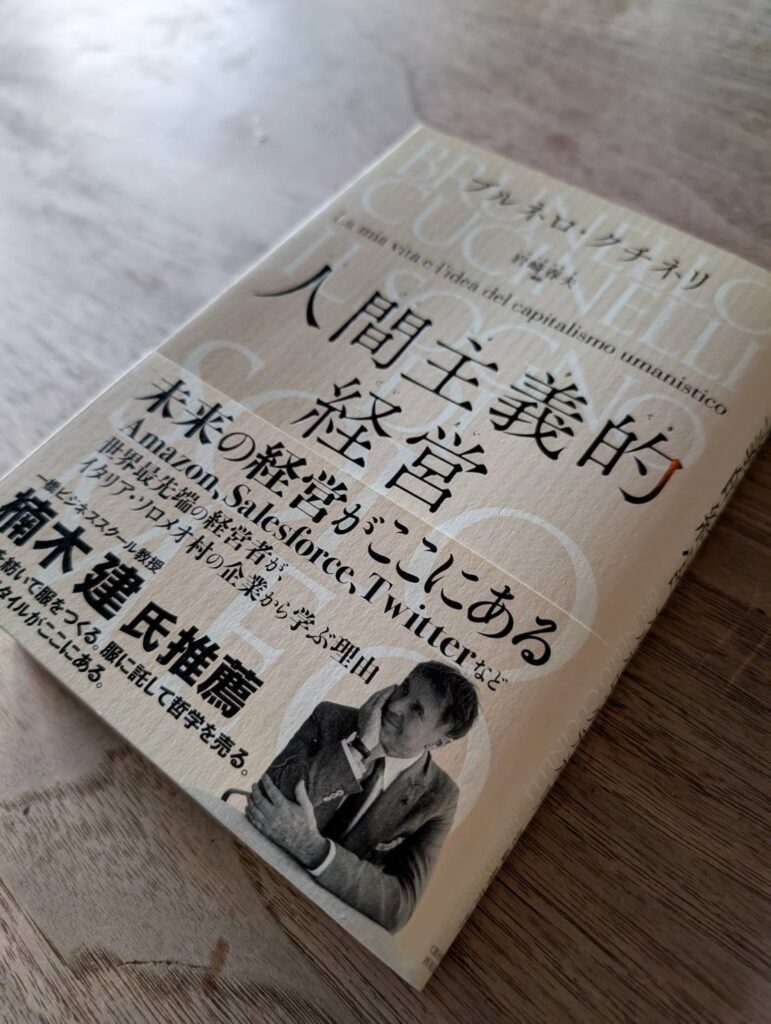 BRUNELLO
CUCINELLI
IL SOGNO
DI
SOLOMEO
ブルネロ・クチネリ
岩崎春夫
La mia vita e l'idea del capitalismo umanistico
人間主義的
経営
未来の経営がここにある
Amazon、Salesforce、Twitterなど
世界最先端の経営者が、
イタリア・ソロメオ村の企業から学ぶ理由
一橋ビジネススクール教授
楠木建氏推薦
を紡いで服をつくる。服に託して哲学を売る。
タイルがここにある。